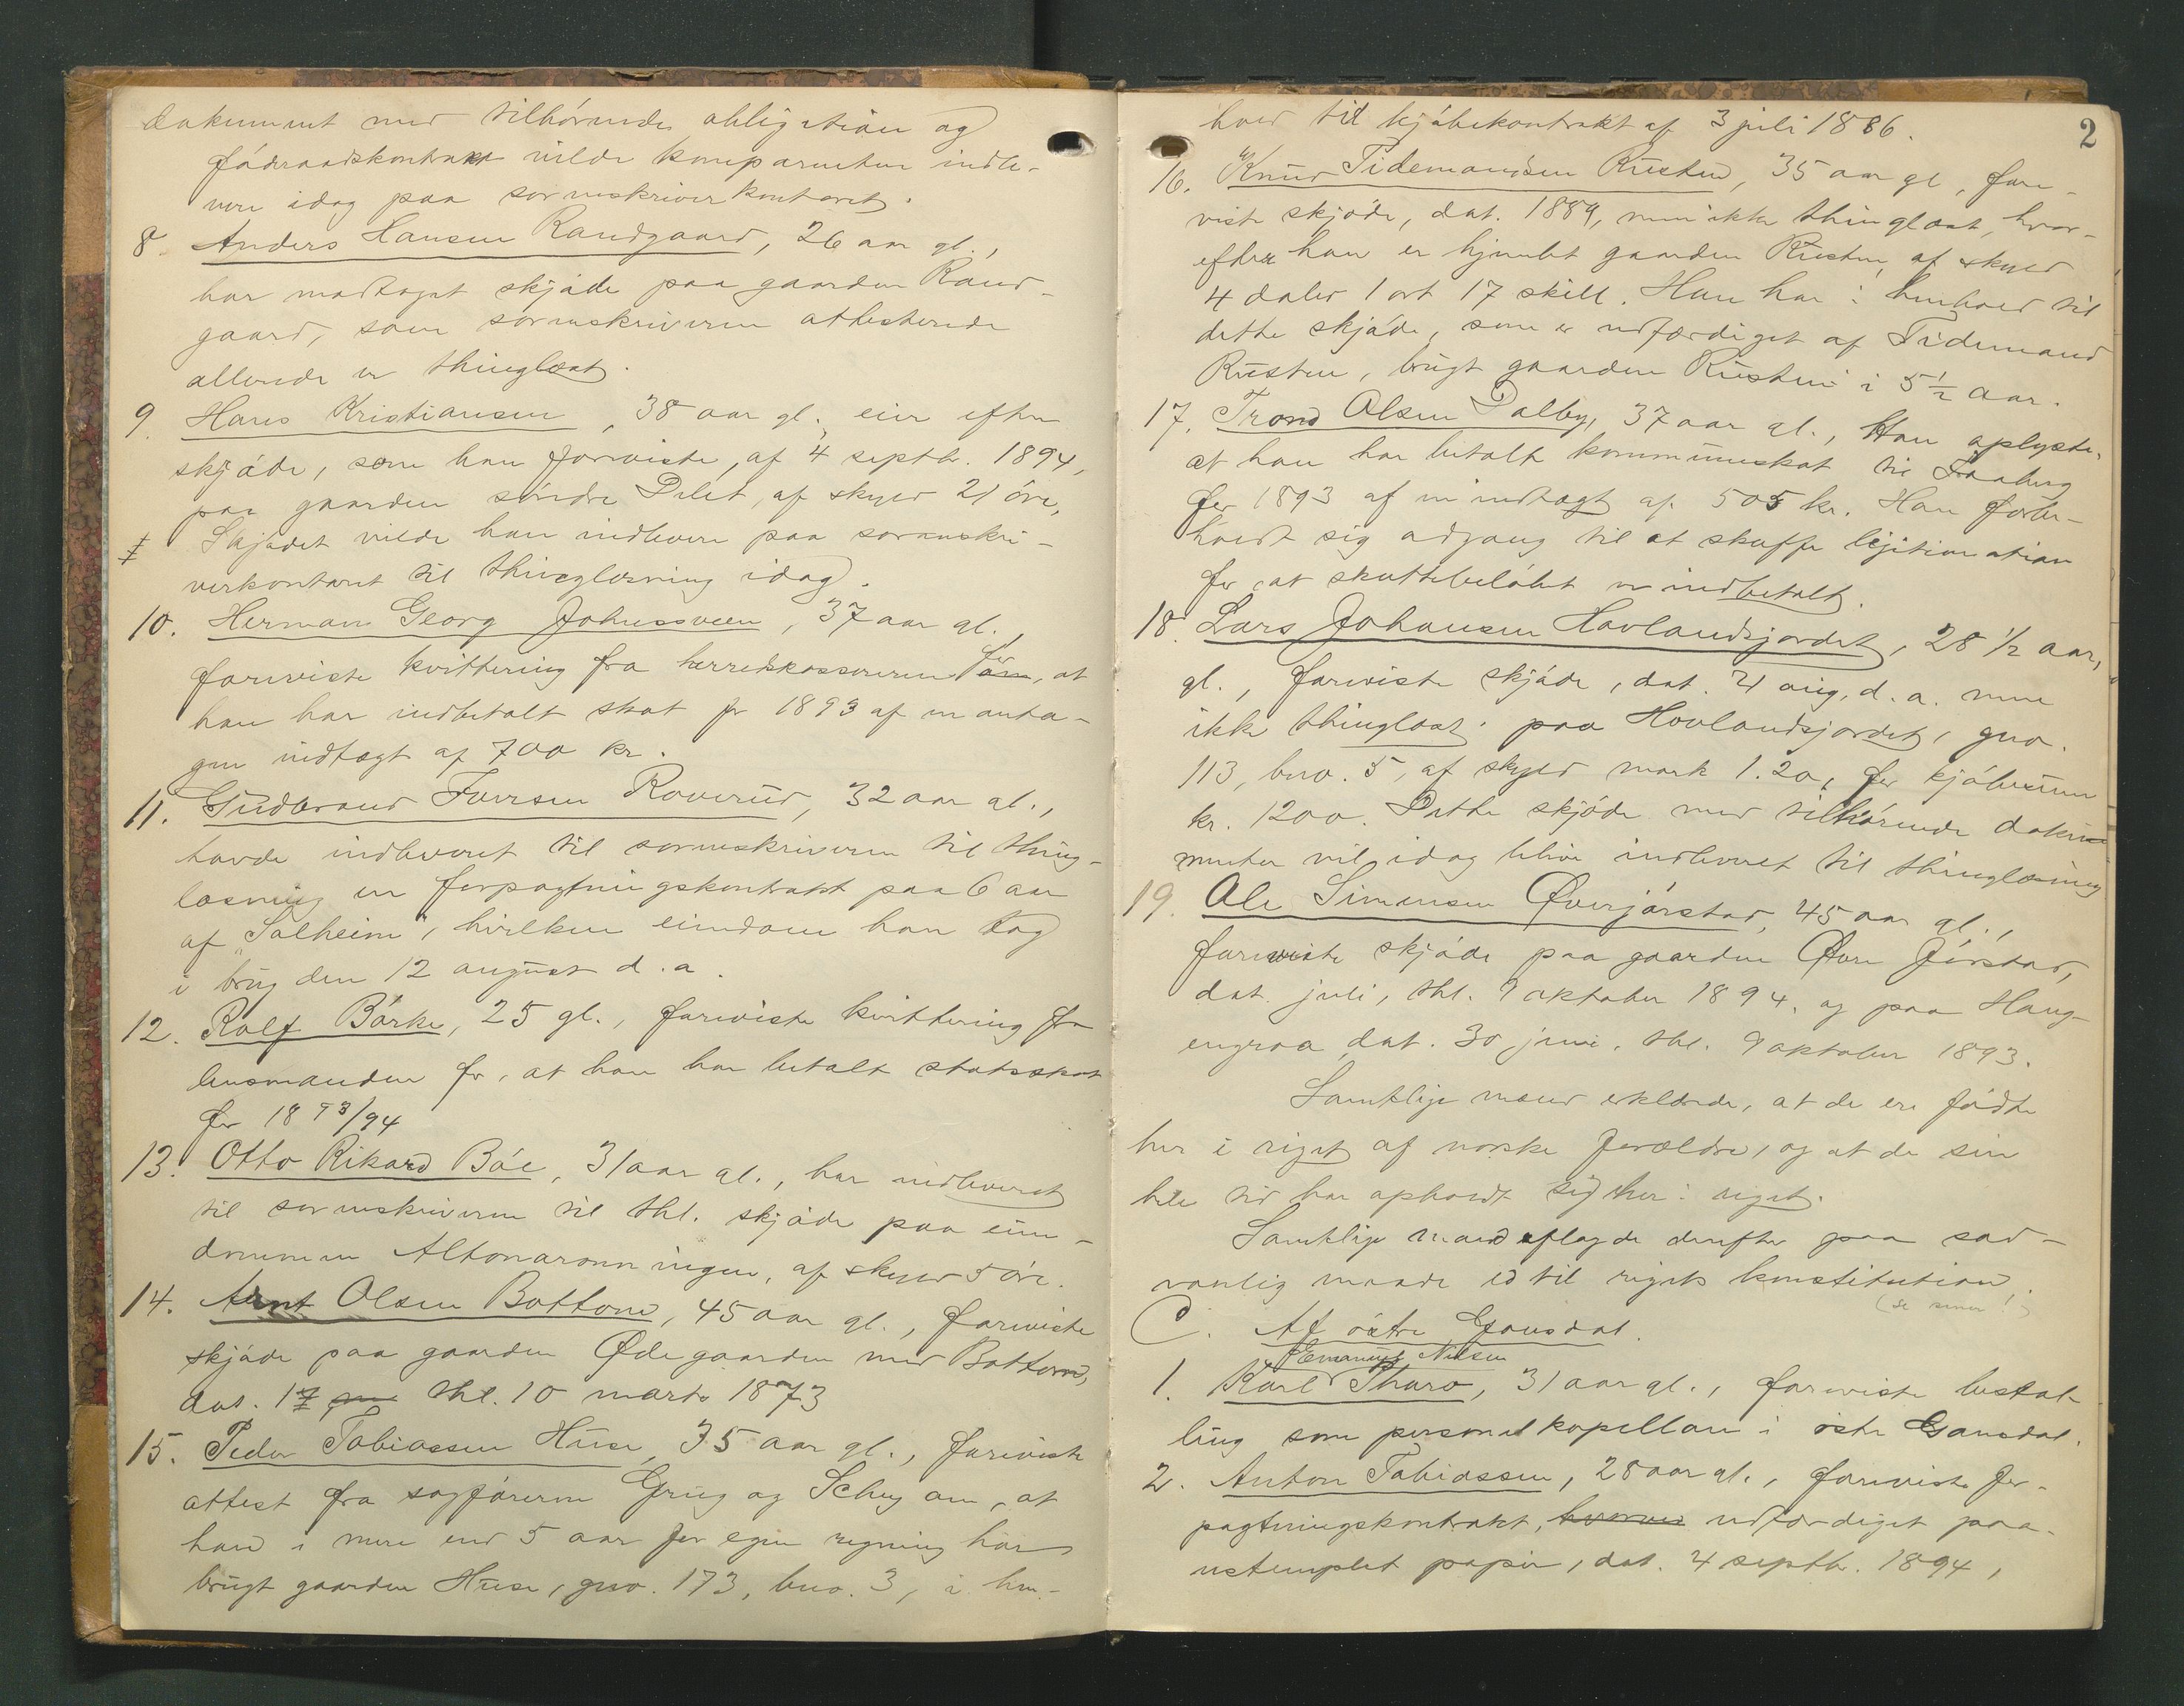 dokument med tilhörende obligation og
födraadskontrakt vilde komparenten indle-
vere idag paa sorenskriverkontoret.
8. Anders Hansen Randgaard, 26 aar gl.,
har modtaget skjöde paa gaarden Rand-
gaard, som sorenskriveren attesterede
allerede er thinglæst.
9. Hans Kristiansen, 38 aar gl., eier efter
skjöde, som han foreviste, af 4 septbr. 1894,
paa gaarden söndre Delet, af skyld 21 öre,
Skjödet vilde han indlevere paa sorenskri-
verkontoret til thinglæsning idag.
10. Herman Georg Johnssveen, 37 aar gl.,
foreviste kvittering fra herredskassereren for, at
han har indbetalt skat for 1893 af en anta-
gen indtægt af 700 kr.
11. Gudbrand Iversen Roverud, 32 aar gl.,
havde indleveret til sorenskriveren til thing-
læsning en forpagtningskontrakt paa 6 aar
af "Solheim", hvilken eiendom han tog
i brug den 12 august d. a.
12. Rolf Börke, 25 gl., foreviste kvittering fra
lensmanden for, at han har betalt statsskat
for 1893/94
13. Otto Rikard Böe, 31 aar gl., har indleveret
til sorenskriveren til thl. skjöde paa eien-
dommen Altonarønningen, af skyld 5 öre.
14. Arnt Olsen Bottom, 45 aar gl., foreviste
skjöde paa gaarden Ødegaarden med Bottom,
dat. 17 thl. 10 marts 1873
15. Peder Tobiassen Huse, 35 aar gl., foreviste
attest fra sagförerne Grug og Schey om, at
han i mere end 5 aar for egen regning har
brugt gaarden Huse, gno. 173, bno. 3, i hen-
2
hold til kjöbekontrakt af 3 juli 1886.
16. Knud Tidemandsen Rusten, 35 aar gl, fore-
viste skjöde, dat. 1889, men ikke thinglæst, hvor-
efter han er hjemlet gaarden Rusten, af skyld
4 daler 1 ort 17 skill. Han har i henhold til
dette skjöde, som er udfærdiget af Tidemand
Rusten, brugt gaarden Rusten i 5 1/2 aar.
17. Trond Olsen Dalby, 37 aar gl., Han oplyste,
at han har betalt kommuneskat til Faaberg
for 1893 af en indtægt af 505 kr. Han forbe-
holdt sig adgang til at skaffe legitimation
for, at skattebelöbet er indbetalt.
18. Lars Johansen Hovlandsjordet, 28 1/2 aar,
gl., foreviste skjöde, dat. 21 aug. d. a. men
ikke thinglæst, paa Hovlandsjordet, gno.
113, bno. 5, af skyld mark 1.20, for kjöbesum
kr. 1200. Dette skjöde med tilhörende doku-
menter vil idag blive indleveret til thinglæsning
19. Ole Simensen Øverjörstad, 45 aar gl.,
foreviste skjöde paa gaarden Øvre Jörstad,
dat. juli, thl. 9 oktober 1894, og paa Haug-
engraa, dat. 30 juni, thl. 9 oktober 1893.
Samtlige mænd erklærede, at de ere födte
her i riget af norske forældre, og at de sin
hele tid har opholdt sig her i riget.
Samtlige mænd aflagde derefter paa sæd-
vanlig maade ed til rigets konstitution.
(se senere!)
C. Af östre Gausdal.
Emanuel Nilsen
1. Karl Tharo, 31 aar gl., foreviste bestal-
ling som personelkapellan i östre Gausdal.
2. Anton Tobiassen, 28 aar gl., foreviste for-
pagtningskontrakt, hvorved udfærdiget paa
ustemplet papir, dat. 4 septbr. 1894,